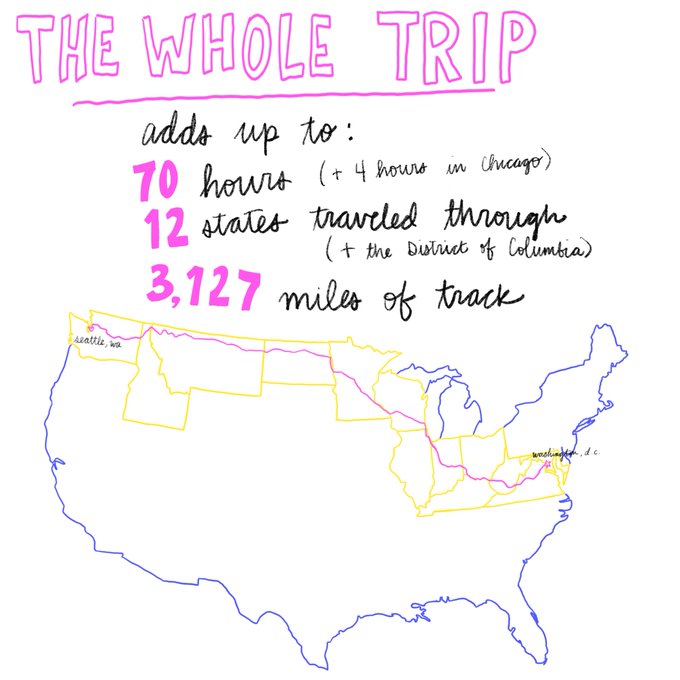 THE WHOLE TRIP
adds up to:
70 hours (+ 4 hours in Chicago)
12 states traveled through
(+ the District of Columbia)
3,127 miles of track
seattle, wa
washington, d.c.